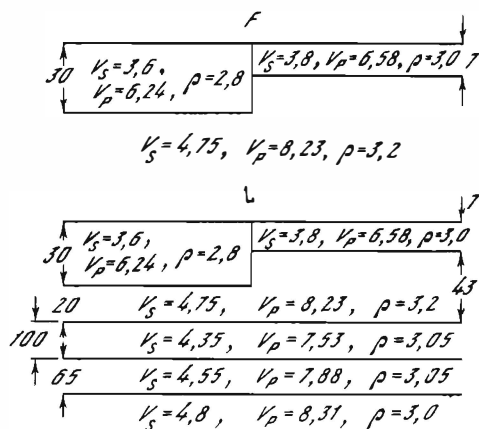 F
30
V_S=3,6,
V_P=6,24, ρ=2,8
V_S=3,8, V_P=6,58, ρ=3,0
7
V_S=4,75, V_P=8,23, ρ=3,2
L
30
V_S=3,6,
V_P=6,24, ρ=2,8
V_S=3,8, V_P=6,58, ρ=3,0
7
43
20 V_S=4,75, V_P=8,23, ρ=3,2
100 V_S=4,35, V_P=7,53, ρ=3,05
65 V_S=4,55, V_P=7,88, ρ=3,05
V_S=4,8, V_P=8,31, ρ=3,0